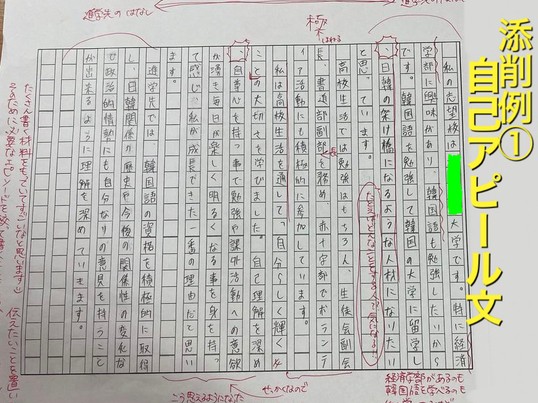 添削例①
自己アピール文
進学先のはなし
私の志望校は 大学です。特に経済
学部に興味があり、韓国語も勉強したいから
です。韓国語を勉強して韓国の大学に留学し
、日韓の架け橋になるような人材になりたい
と思っています。
高校生活では勉強はもちろん、生徒会副会
長、書道部副部長を務め、赤十字部でボランテ
ィア活動にも積極的に参加しています。
私は高校生活を通して「自分らしく輝く」
ことの大切さを学びました。自己理解を深め
、自尊心を持つ事で勉強や課外活動への意欲
が湧き毎日が楽しく明るくなる事を身を持っ
て感じ、私が成長できた一番の理由だと思い
ます。
進学先では韓国語の資格を積極的に取得
し、日韓関係が歴史や今後の関係性の変化な
ど政治的情勢にも自分なりの意見を持つこと
が出来るように理解を深めていきます。
たくさん書く材料をもっていてすごいなと思います
伝えたいことを置い
こう思えるようになった
せっかくなので
経済学部があるのも
韓国語を学べるのも